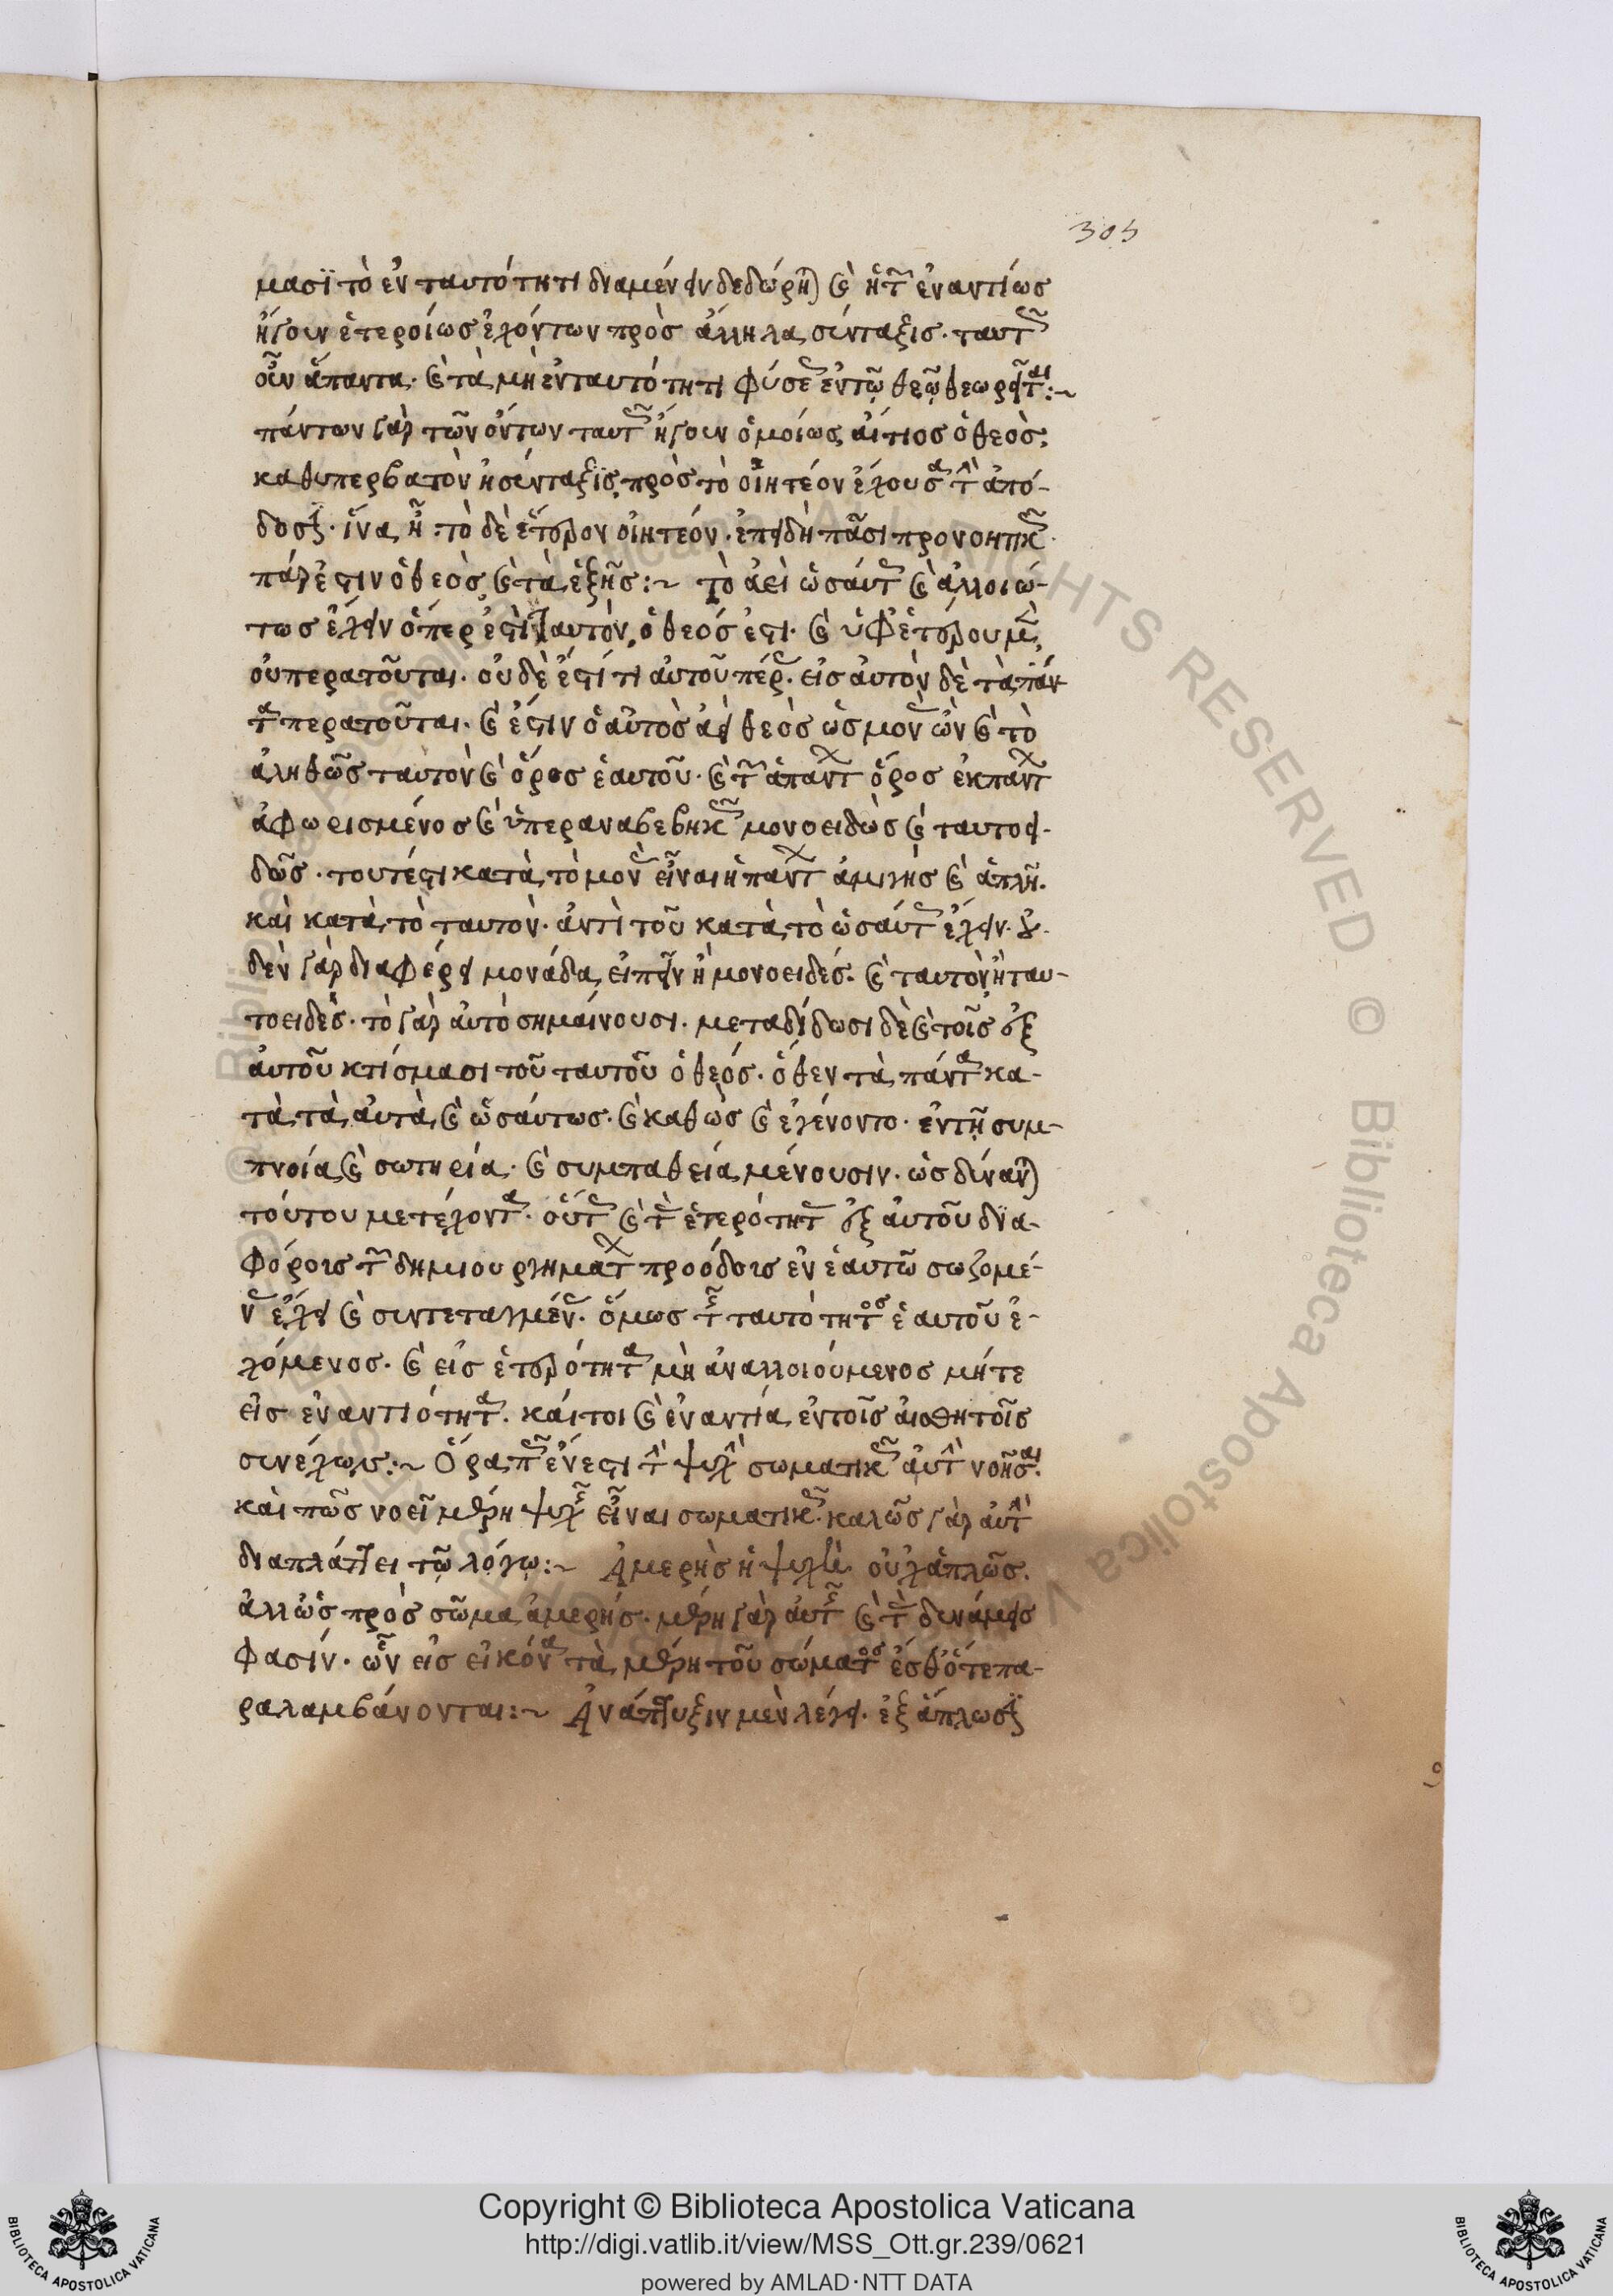 305
μασϊ τὸ ἐν ταυτότητι διαμένειν δεδώρηται καὶ ἡ τῶν ἐναντίως
ἤγουν ἑτεροίως ἐχόντων πρὸς ἄλληλα σύνταξις. ταυτῶς
οὖν ἅπαντα. καὶ τὰ μὴ ἐν ταυτότητι φύσεως ἐν τῷ θεῷ θεωρεῖται:~
πάντων γὰρ τῶν ὄντων ταυτῶς ἤγουν ὁμοίως αἴτιος ὁ θεὸς.
καθυπερβατὸν ἡ σύνταξϊς, πρὸς τὸ οἰητέον ἔχουσα τὴν ἀπό-
δοσιν. ἵνα ἦ. τὸ δὲ ἕτερον οἰητέον. ἐπειδὴ πᾶσι προνοητικῶς
πάρεστιν ὁ θεὸς καὶ τὰ ἑξῆς:~ τὸ ἀεὶ ὡσαύτως καὶ ἀλλοιώ-
τως ἔχειν ὅπερ ἐστὶ ταυτὸν, ὁ θεός ἐστι. καὶ ὑφ' ἑτέρου μὲν
οὐ περατοῦται. οὐδὲ ἐστί τι αὐτοῦ πέρας. εἰς αὐτὸν δὲ τὰ πάν
τα περατοῦται. καὶ ἔστιν ὁ αὐτὸς ἀεὶ θεὸς ὡς μόνος ὢν καὶ τὸ
ἀληθῶς ταυτὸν καὶ ὅρος ἑαυτοῦ. καὶ τῶν ἁπάντων ὅρος ἐκ πάντων
ἀφωρισμένος καὶ ὑπεραναβεβηκὼς μονοειδὼς καὶ ταυτοει-
δῶς. τουτέστι κατὰ τὸ μόνος εἶναι ἡ πάντων ἀμιγὴς καὶ ἁπλῆ.
καὶ κατὰ τὸ ταυτὸν. ἀντὶ τοῦ κατὰ τὸ ὡσαύτως ἔχειν. οὐ-
δὲν γὰρ διαφέρει μονάδα εἰπεῖν ἢ μονοειδές. καὶ ταυτὸν ἢ ταυ-
τοειδὲς. τὸ γὰρ αὐτὸ σημαίνουσι. μεταδίδωσι δὲ καὶ τοῖς ἐξ
αὐτοῦ κτίσμασι τοῦ ταυτοῦ ὁ θεός. ὅθεν τὰ πάντα κα-
τὰ τὰ αὐτὰ καὶ ὡσαύτως. καὶ καθὼς καὶ ἐγένοντο. ἐν τῇ συμ-
πνοία καὶ σωτηρία. καὶ συμπαθεία μένουσιν. ὡς δύναται
τούτου μετέχοντα. οὕτως καὶ τὰς ἑτερότητας ἐξ αὐτοῦ δϊα-
φόροις τῶν δημιουργημάτων προόδοις ἐν ἑαυτῶ σωζομέ-
νας ἔχει καὶ συντεταγμένας. ὅμως τῆς ταυτότητος ἑαυτοῦ ἐ-
χόμενος. καὶ εἰς ἑτερότητα μὴ ἀναλλοιούμενος μήτε
εἰς ἐναντιότητα. καίτοι καὶ ἐναντία ἐν τοῖς αἰσθητοῖς
συνέχων:~ Ὅρα πῶς ἔνεστι τὴν ψυχὴν σωματικῶς αὐτὴν νοῆσαι.
καὶ πῶς νοεῖ μέρη ψυχῆς εἶναι σωματικῶς. καλῶς γὰρ αὐτὴν
διαπλάττει τῷ λόγῳ:~ Ἀμερὴς ἡ ψυχὴ οὐχ ἁπλῶς.
ἀλλ' ὡς πρὸς σῶμα ἀμερής. μέρη γὰρ αὐτῆς καὶ τὰς δυνάμεις
φασίν. ὧν εἰς εἰκόνα τὰ μέρη τοῦ σώματος ἔσθ' ὅτε πα-
ραλαμβάνονται:~ Ἀνάπτυξιν μὲν λέγει. ἐξάπλωσιν
Copyright © Biblioteca Apostolica Vaticana
http://digi.vatlib.it/view/MSS_Ott.gr.239/0621
powered by AMLAD·NTT DATA
BIBLIOTECA APOSTOLICA VATICANA
BIBLIOTECA APOSTOLICA VATICANA